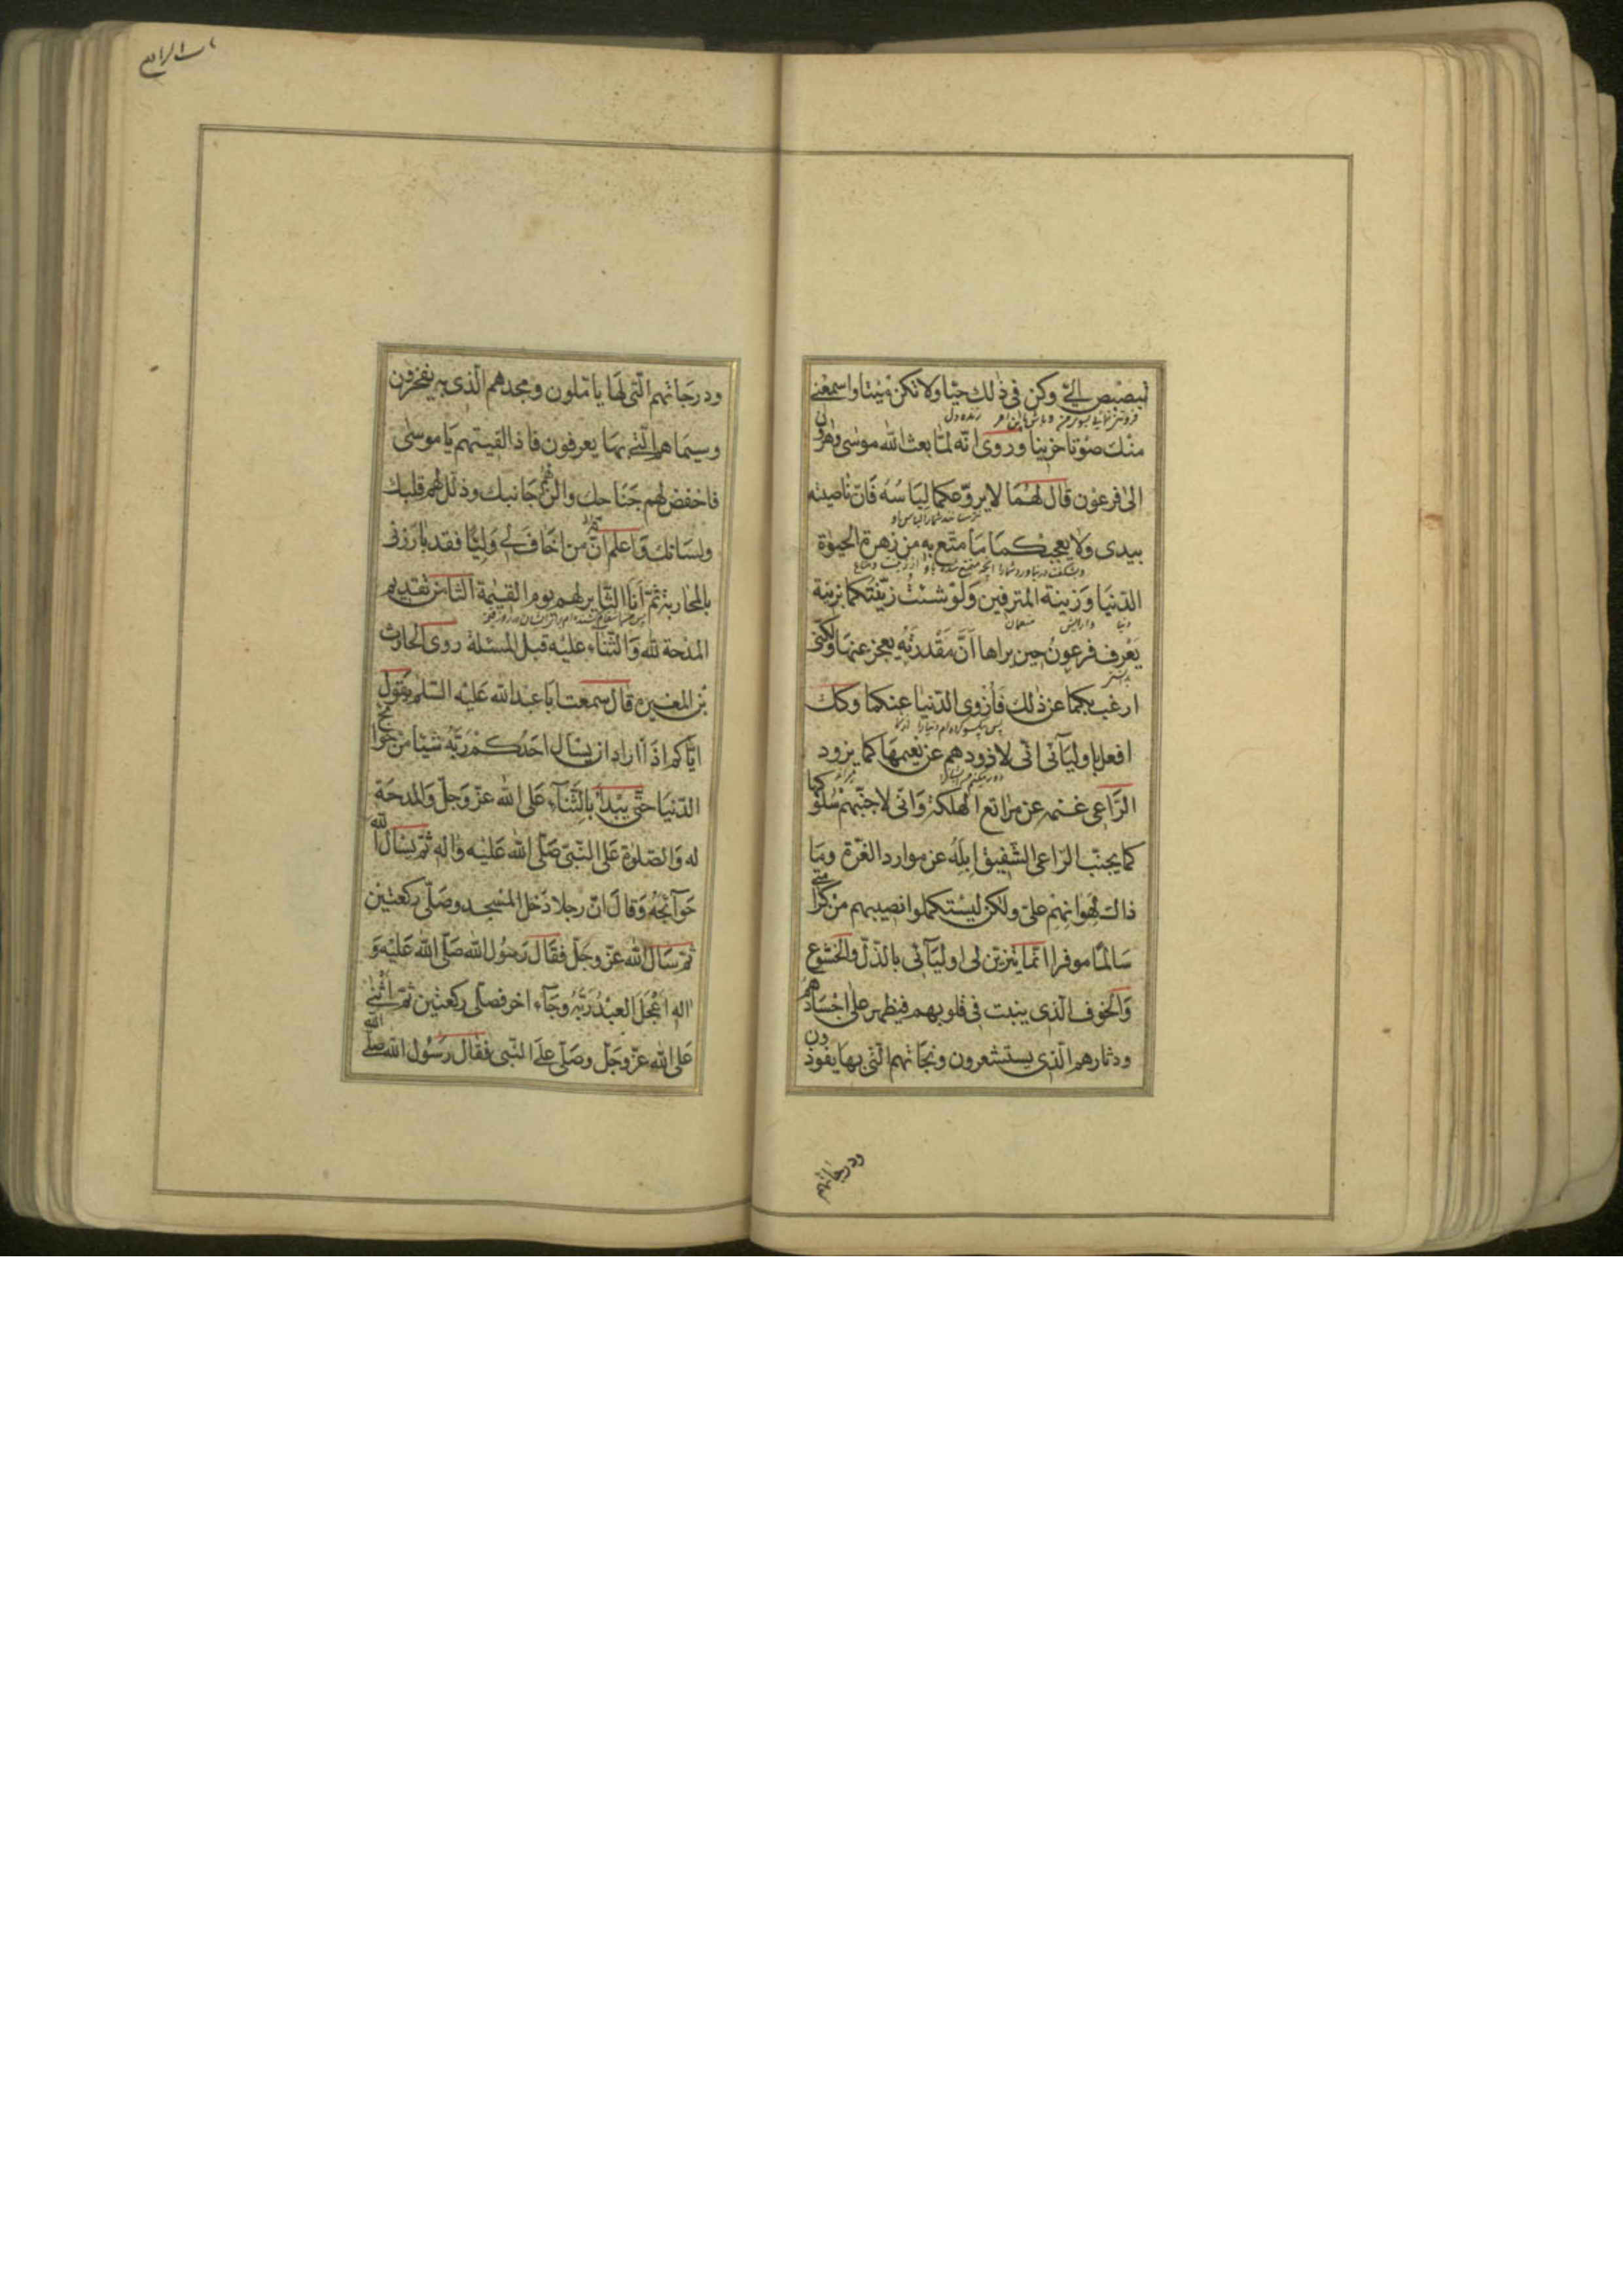 تبصبص الیّ وکن فی ذلک حیّا ولا تکن میتا واسمعنے
منک صوتا حزینا وروی انّه لمّا بعث الله موسی وهرون
الی فرعون قال لهما لا یروّعکما لباسه فانّ ناصیته
بیدی ولا یعجبکما ما متّع به من زهرة الحیوة
الدّنیا وزینة المترفین ولو شئت زیّنتکما بزینة
یعرف فرعون حین یراها انّ مقدرته یعجز عنها ولکنّی
ارغب بکما عن ذلک فازوی الدّنیا عنکما وکذلک
افعل باولیآئی انّی لاذودهم عن نعیمها کما یزود
الرّاعی غنمه عن مراتع الهلکة وانّی لاجنّبهم سلوکها
کما یجنّب الرّاعی الشّفیق ابله عن موارد الغرّة وما
ذاک لهوانهم علیّ ولکن لیستکملوا نصیبهم من کرامتے
سالمًا موفرا انّما یتزیّن لی اولیآئی بالذّلّ والخشوع
والخوف الّذی ینبت فی قلوبهم فیظهر علی اجسادهم
ودثارهم الّذی یستشعرون ونجاتهم الّتی بها یفوزون
ودرجاتهم
باب الرابع
ودرجاتهم الّتی لها یاملون ومجدهم الّذی به یفخرون
وسیماهم الّتی بها یعرفون فاذا لقیتهم یا موسی
فاخفض لهم جناحک والن لهم جانبک وذلّل لهم قلبک
ولسانک واعلم انّ من اخاف لے ولیًّا فقد بارزنی
بالمحاربة ثمّ انا الثّایر لهم یوم القیمة الثّامن تقدیم
المدحة لله والثّناء علیه قبل المسئلة روی الحارث
بن المغیرة قال سمعت ابا عبد الله علیه السّلم یقول
ایّاکم اذا اراد ان یسال احدکم ربّه شیئا من حوائج
الدّنیا حتّی یبدا بالثّنآء علی الله عزّ وجلّ والمدحة
له والصّلوة علی النّبیّ صلّی الله علیه واله ثمّ یسال الله
حوآئجه وقال انّ رجلا دخل المسجد وصلّی رکعتین
ثمّ سال الله عزّ وجلّ فقال رسول الله صلّی الله علیه و
اله اعجل العبد ربّه وجآء اخر فصلّی رکعتین ثمّ اثنے
علی الله عزّ وجلّ وصلّی علی النّبی فقال رسول الله صلّی الله